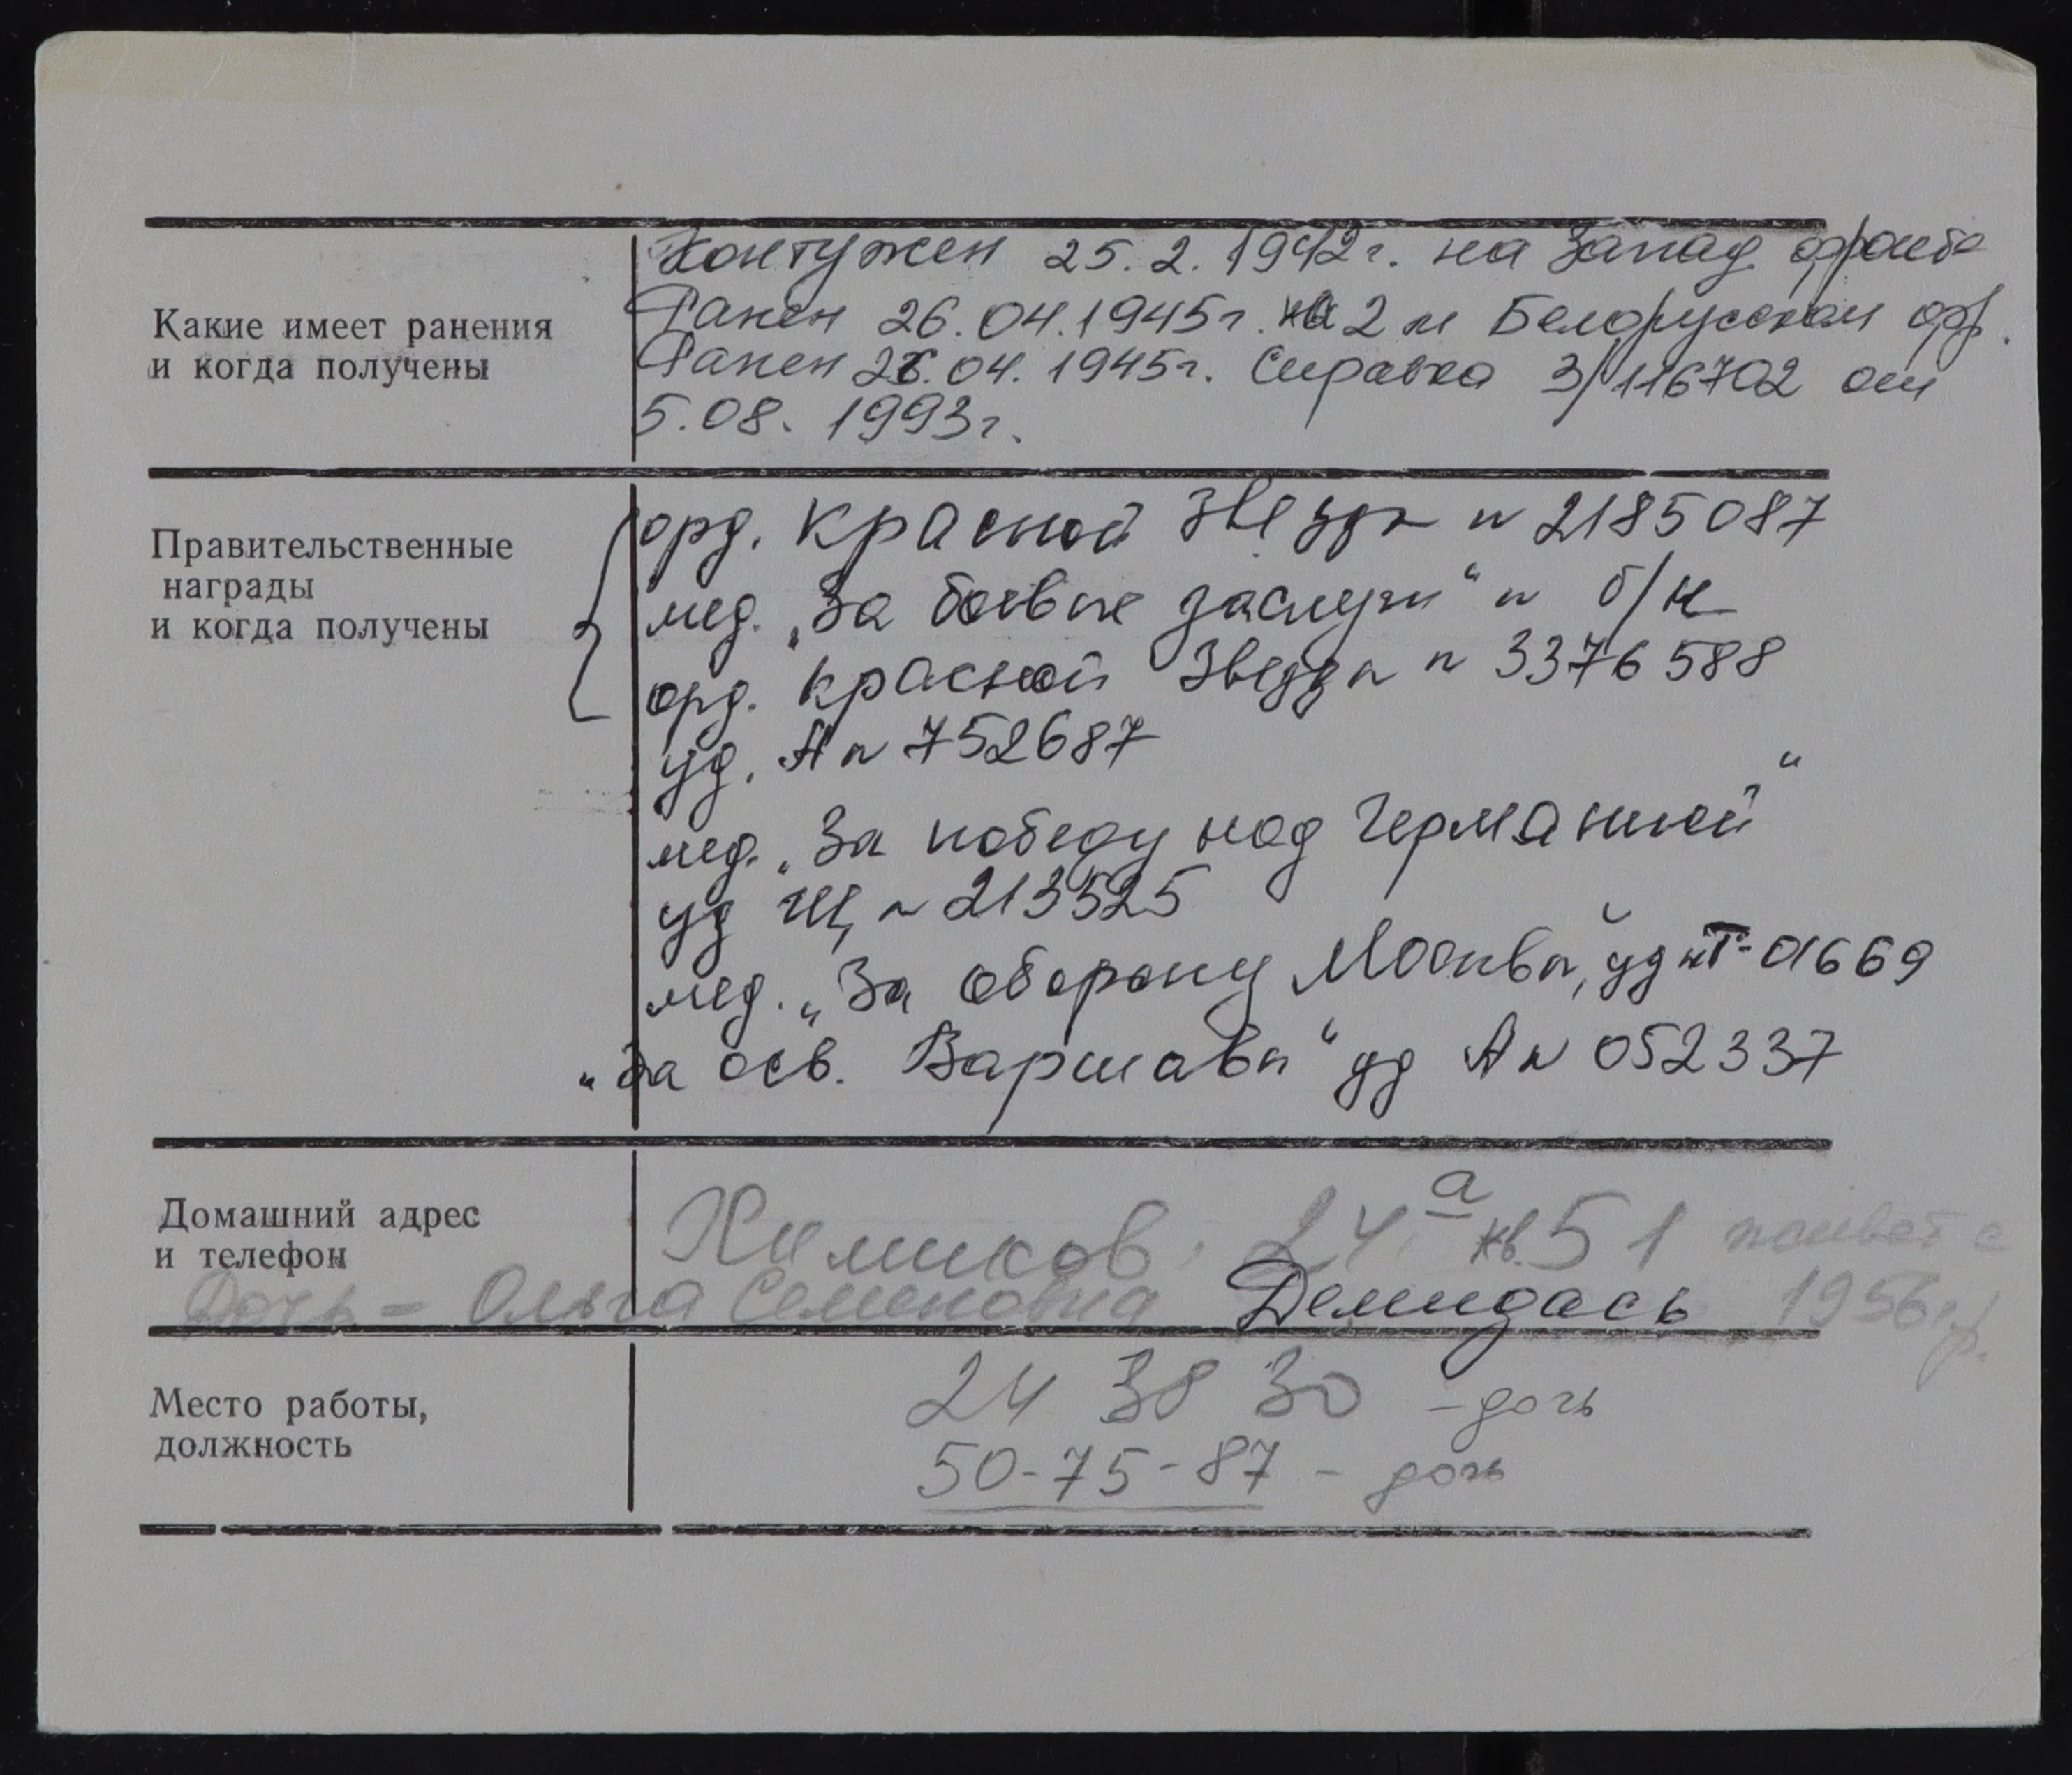 Какие имеет ранения
и когда получены
Контужен 25.2.1942г. на Запад фронте
Ранен 26.04.1945г. на 2 м Белорусском фр.
Ранен 26.04.1945г. Справка 3/116702 от
5.08.1993г.
Правительственные
награды
и когда получены
орд. Красной Звезды н 2185087
мед. „За боевые заслуги“ н б/н
орд. Красной Звезды н 3376588
уд. А н 752687
мед. „За победу над Германией“
уд Щ н 213525
мед. „За оборону Москвы“, уд н Т-01669
„За осв. Варшавы“ уд А н 052337
Домашний адрес
и телефон
Химиков, 24а кв. 51 живет с
Дочь = Ольга Семеновна Демидась 1956г.р.
Место работы,
должность
24 38 30 - дочь
50-75-87 - дочь